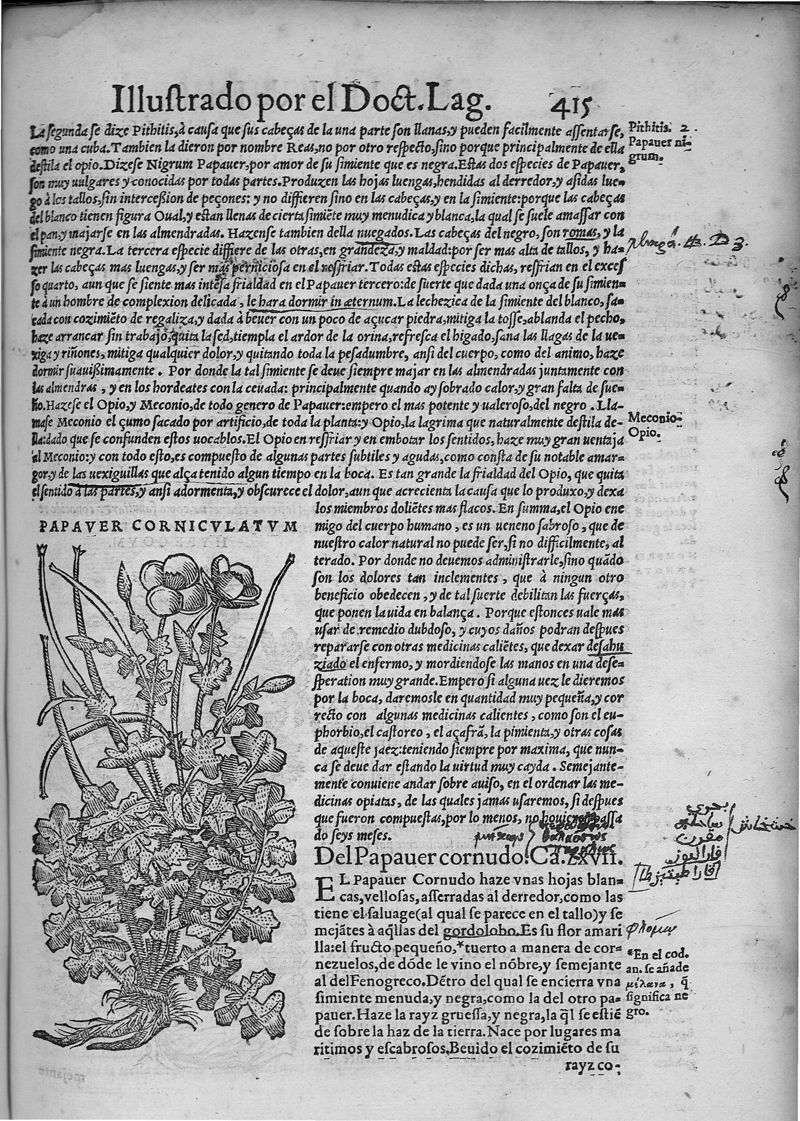 Illustrado por el Doct. Lag. 415
La segunda se dize Pithitis, à causa que sus cabeças de la una parte son llanas, y pueden facilmente assentarse,
como una cuba. Tambien la dieron por nombre Reas, no por otro respecto, sino porque principalmente de ella
destila el opio. Dizese Nigrum Papauer, por amor de su simiente que es negra. Estas dos especies de Papauer,
son muy uulgares y conocidas por todas partes. Produzen las hojas luengas, hendidas al derredor, y asidas lue-
go à los tallos, sin intercession de peçones: y no diffieren sino en las cabeças, y en la simiente: porque las cabeças
del blanco tienen figura Oual, y estan llenas de cierta simiẽte muy menudica y blanca, la qual se suele amassar con
el pan, y majarse en las almendradas. Hazense tambien della nuegados. Las cabeças del negro, son romas, y la
simiente negra. La tercera especie differe de las otras, en grandeza, y maldad: por ser mas alta de tallos, y ha-
zer las cabeças mas luengas, y ser mas perniciosa en el resfriar. Todas estas especies dichas, resfrian en el excess
so quarto, aun que se siente mas intẽsa frialdad en el Papauer tercero: de suerte que dada una onça de su simien-
te à un hombre de complexion delicada, le hara dormir in æternum. La lechezica de la simiente del blanco, sa-
cada con cozimiẽto de regaliza, y dada à beuer con un poco de açucar piedra, mitiga la tosse, ablanda el pecho,
haze arrancar sin trabajo, quita la sed, tiempla el ardor de la orina, refresca el higado, sana las llagas de la ue-
xiga y riñones, mitiga qualquier dolor, y quitando toda la pesadumbre, ansi del cuerpo, como del animo, haze
dormir suauißimamente. Por donde la tal simiente se deue siempre majar en las almendradas juntamente con
las almendras, y en los hordeates con la ceuada: principalmente quando ay sobrado calor, y gran falta de sue-
ño. Hazese el Opio, y Meconio, de todo genero de Papauer: empero el mas potente y ualeroso, del negro. Lla-
mase Meconio el çumo sacado por artificio, de toda la planta: y Opio, la lagrima que naturalmente destila de-
lla: dado que se confunden estos uocablos. El Opio en resfriar y en embotar los sentidos, haze muy gran uentaja
al Meconio: y con todo esto, es compuesto de algunas partes subtiles y agudas, como consta de su notable amar-
gor, y de las uexiguillas que alça tenido algun tiempo en la boca. Es tan grande la frialdad del Opio, que quita
el sentido à las partes, y ansi adormenta, y obscurece el dolor, aun que acrecienta la causa que lo produxo, y dexa
los miembros doliẽtes mas flacos. En summa, el Opio ene
migo del cuerpo humano, es un ueneno sabroso, que de
nuestro calor natural no puede ser, si no difficilmente, al
terado. Por donde no deuemos administrarle, sino quãdo
son los dolores tan inclementes, que à ningun otro
beneficio obedecen, y de tal suerte debilitan las fuerças,
que ponen la uida en balança. Porque estonces uale mas
usar de remedio dubdoso, y cuyos daños podran despues
repararse con otras medicinas caliẽtes, que dexar desahu
ziado el enfermo, y mordiendose las manos en una dese-
speration muy grande. Empero si alguna uez le dieremos
por la boca, daremosle en quantidad muy pequeña, y cor
recto con algunas medicinas calientes, como son el eu-
phorbio, el castoreo, el açafrã, la pimienta, y otras cosas
de aqueste jaez: teniendo siempre por maxima, que nun-
ca se deue dar estando la uirtud muy cayda. Semejante-
mente conuiene andar sobre auiso, en el ordenar las me-
dicinas opiatas, de las quales jamas usaremos, si despues
que fueron compuestas, por lo menos, no houieren passa
do seys meses.
PAPAVER CORNICVLATVM
Del Papauer cornudo. Ca. LXVII.
EL Papauer Cornudo haze vnas hojas blan-
cas, vellosas, asserradas al derredor, como las
tiene el saluage (al qual se parece en el tallo) y se
mejãtes à aq̃llas del gordolobo. Es su flor amari
lla: el fructo pequeño, *tuerto a manera de cor-
nezuelos, de dõde le vino el nõbre, y semejante
al del Fenogreco. Dẽtro del qual se encierra vna
simiente menuda, y negra, como la del otro pa-
pauer. Haze la rayz gruessa, y negra, la q̃l se estiẽ
de sobre la haz de la tierra. Nace por lugares ma
ritimos y escabrosos. Beuido el cozimiẽto de su
rayz co-
Pithitis. 2.
Papauer ni-
grum.
Meconio-
Opio.
خشخاش
*En el cod.
an. se añade
μέλανα, q̃
significa ne
gro.